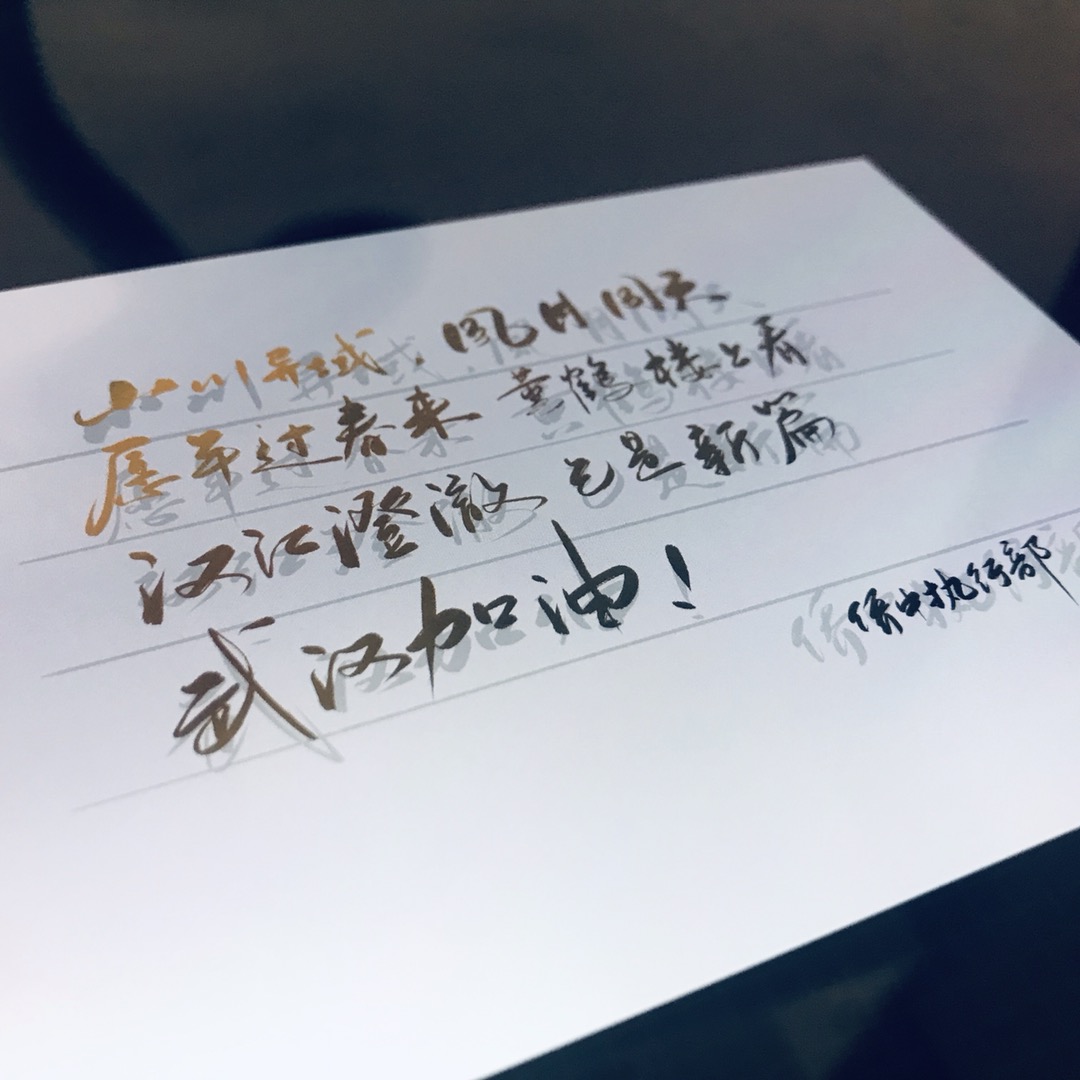 山川异域，風月同天
历年过春来 黄鹤楼上看
汉江澄澈 已是新篇
武汉加油！
中执行部